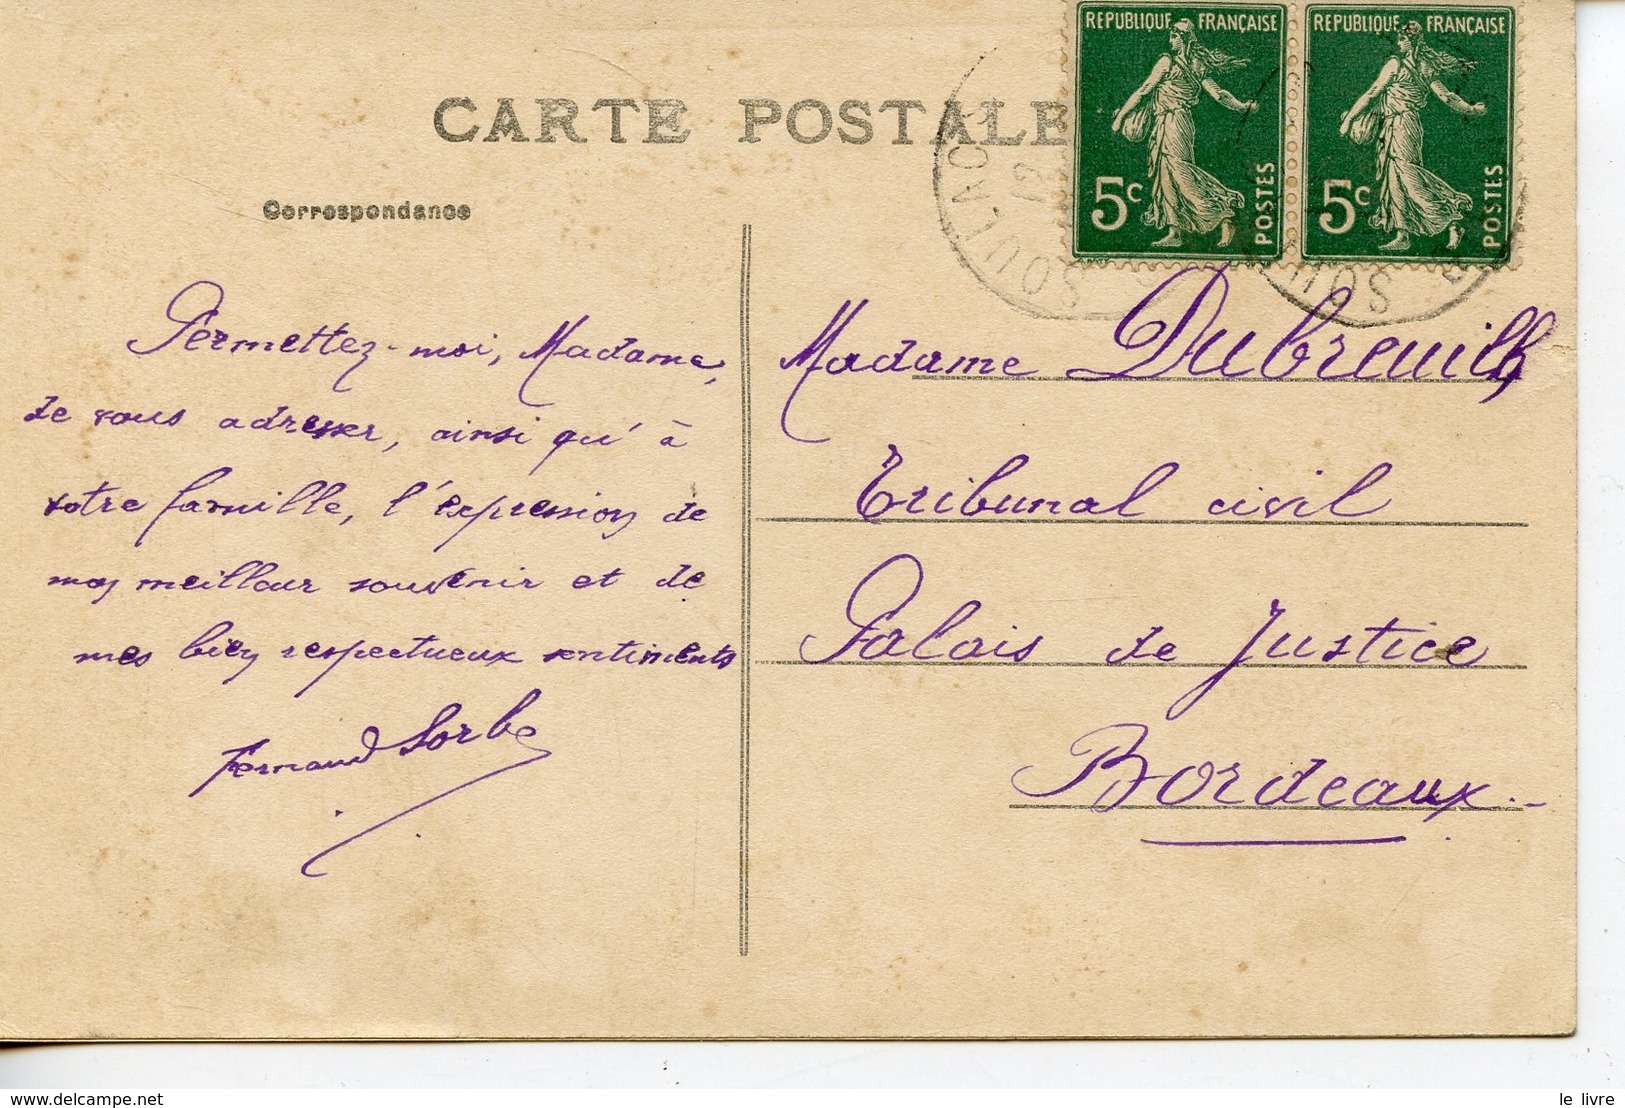 CARTE POSTALE
REPUBLIQUE FRANÇAISE
5c
POSTES
REPUBLIQUE FRANÇAISE
5c
POSTES
SOULAC
Correspondance
Permettez-moi, Madame,
de vous adresser, ainsi qu'à
votre famille, l'expression de
mon meilleur souvenir et de
mes bien respectueux sentiments
Fernand Sorbe
Madame Dubreuilh
Tribunal civil
Palais de Justice
Bordeaux.-
www.delcampe.net
le livre